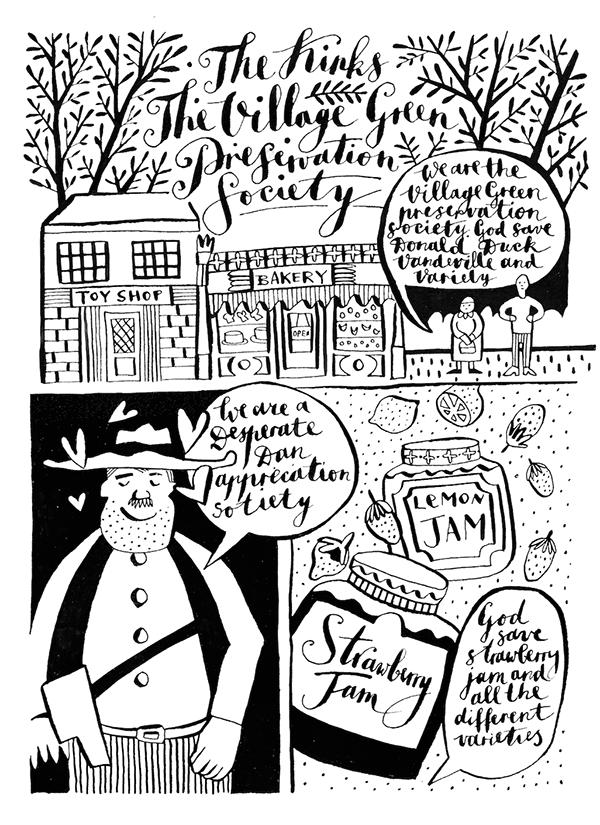 The Kinks
The Village Green
Preservation
Society
We are the
Village Green
preservation
society. God save
Donald Duck
Vaudeville and
Variety
TOY SHOP
BAKERY
OPEN
We are a
Desperate
Dan
apprecation
society
LEMON
JAM
Strawberry
Jam
God
save
strawberry
jam and
all the
different
varieties